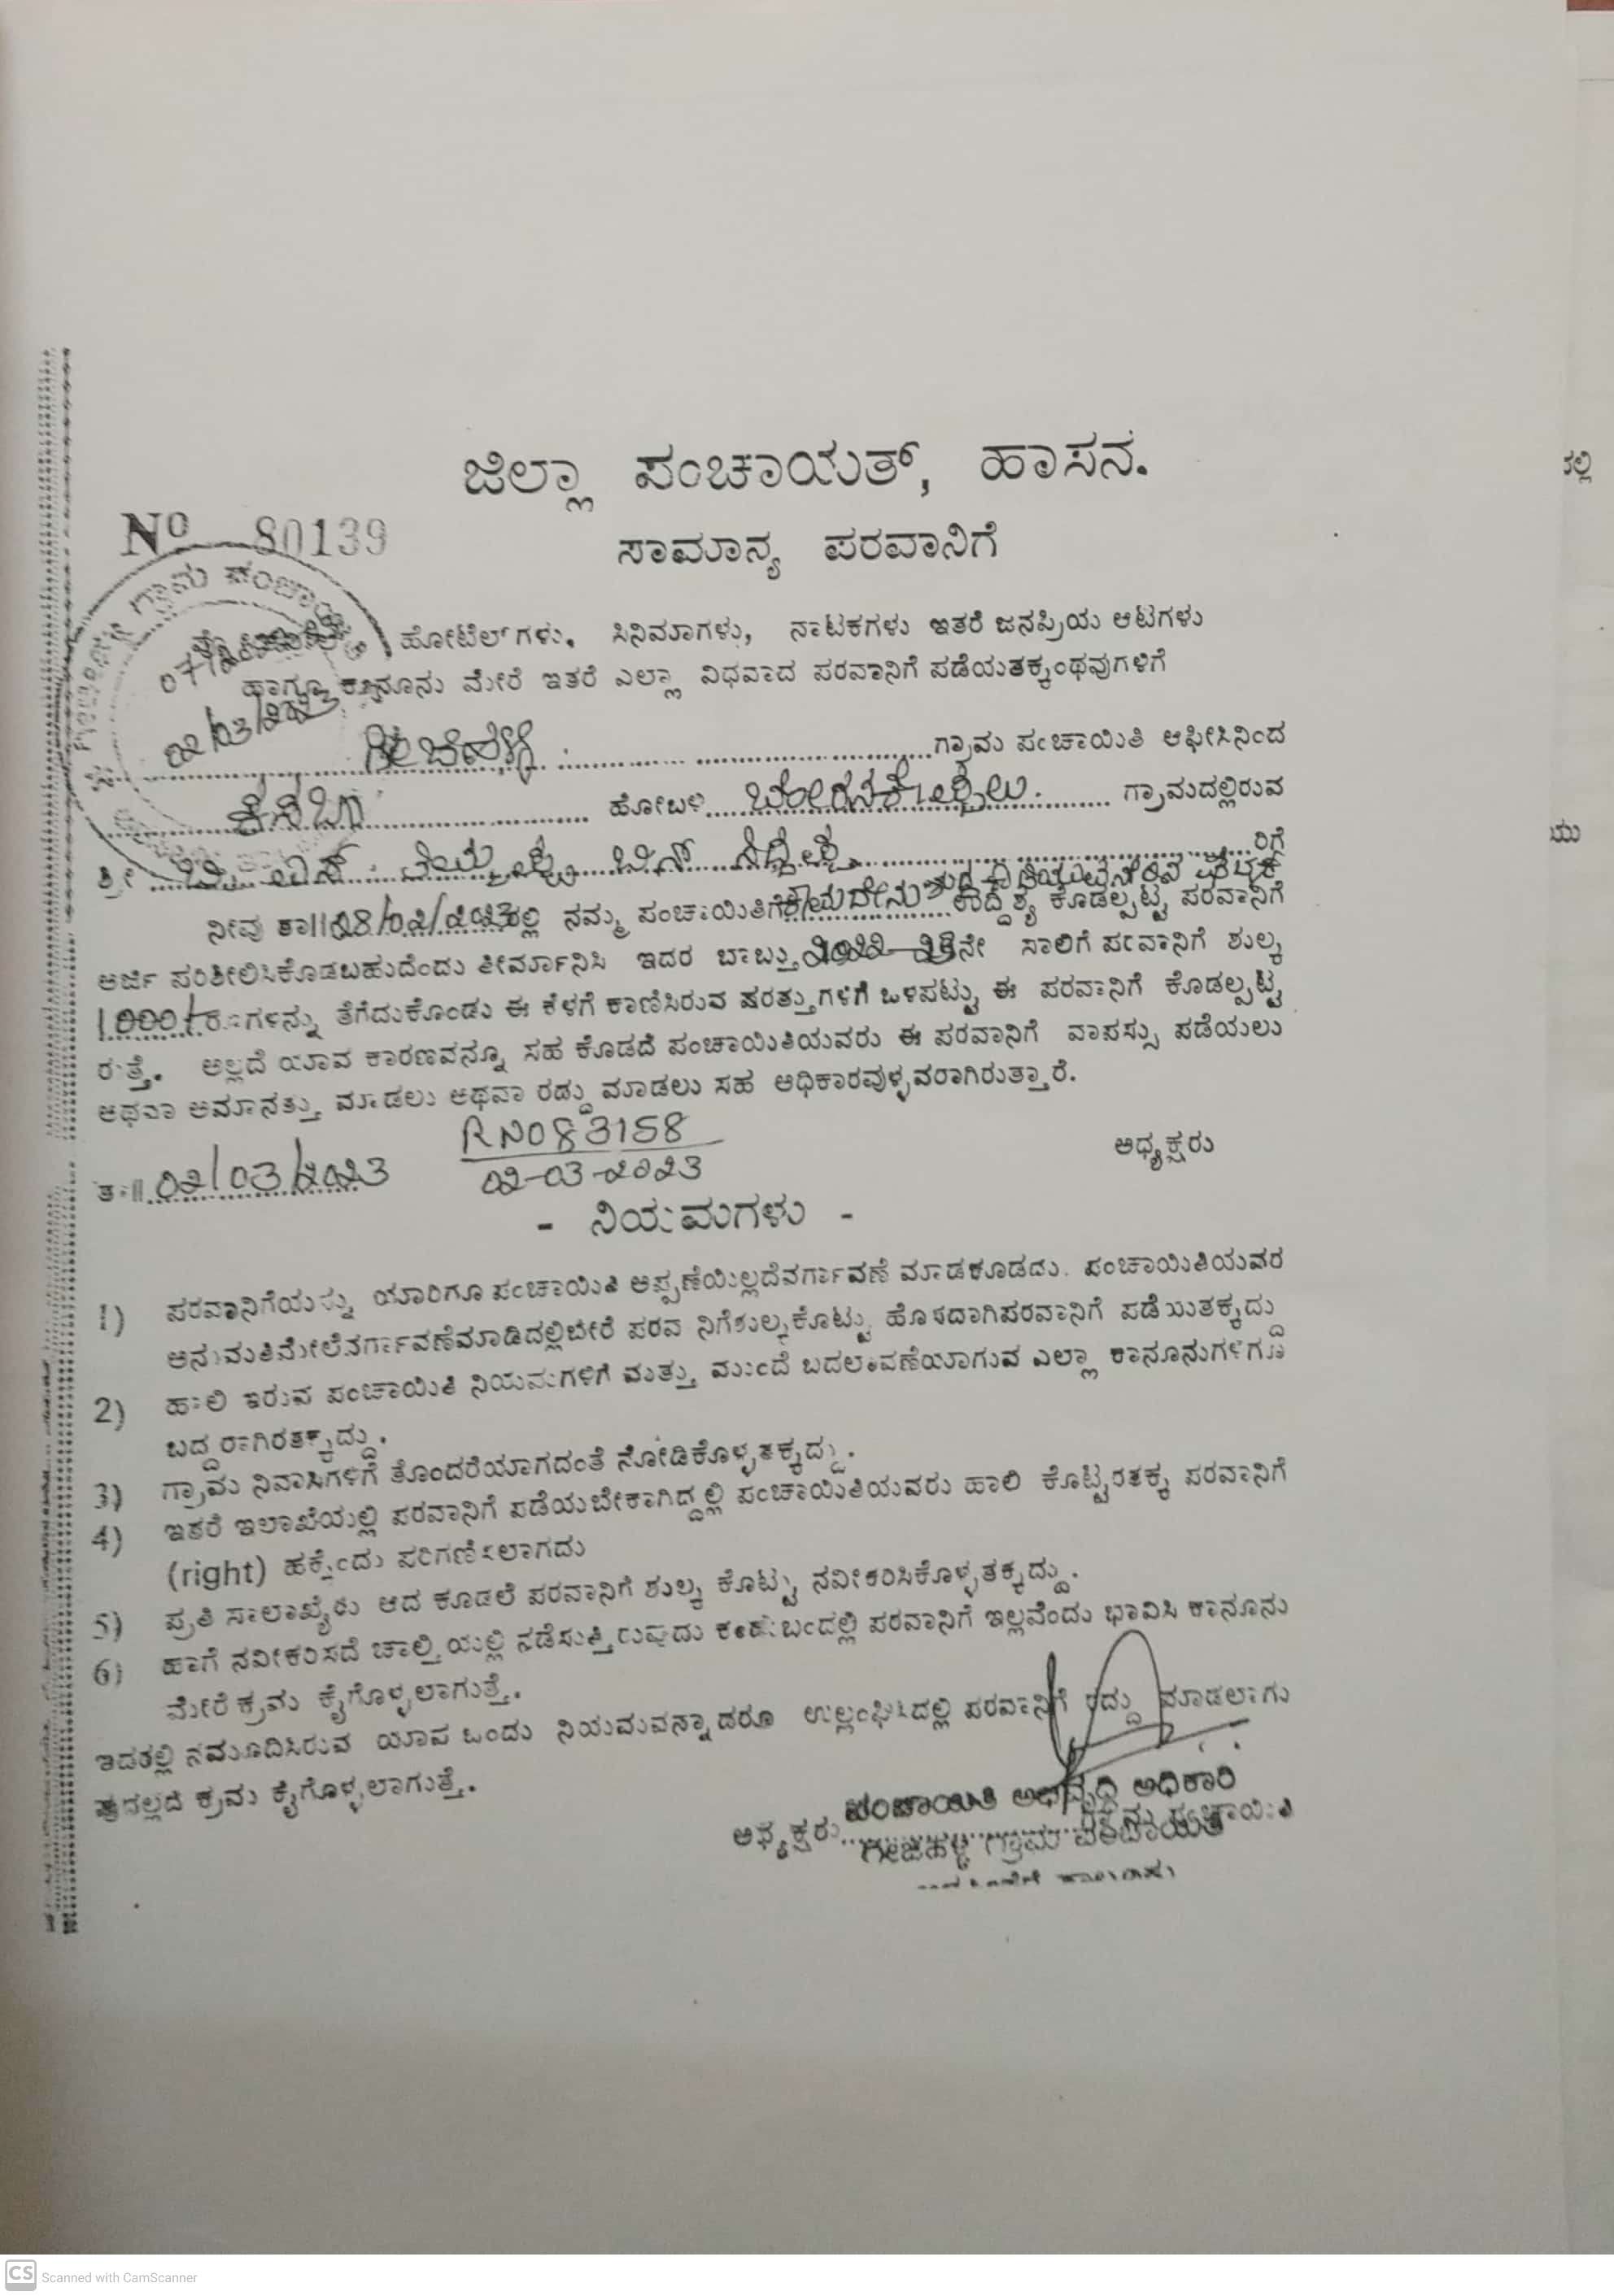 ಜಿಲ್ಲಾ ಪಂಚಾಯತ್, ಹಾಸನ.
Nº 80139
ಸಾಮಾನ್ಯ ಪರವಾನಿಗೆ
ಗ್ರಾಮ ಪಂಚಾಯಿತಿ
ಹೋಟೆಲ್‌ಗಳು, ಸಿನಿಮಾಗಳು, ನಾಟಕಗಳು ಇತರೆ ಜನಪ್ರಿಯ ಆಟಗಳು
ಹಾಗೂ ಕಾನೂನು ಮೇರೆ ಇತರೆ ಎಲ್ಲಾ ವಿಧವಾದ ಪರವಾನಿಗೆ ಪಡೆಯತಕ್ಕಂಥವುಗಳಿಗೆ
02/03/2023
ಗೀಜಿಹಳ್ಳಿ ಗ್ರಾಮ ಪಂಚಾಯಿತಿ ಆಫೀಸಿನಿಂದ
ಕಸಬಾ ಹೋಬಳಿ ಬೋರನಕೊಪ್ಪಲು. ಗ್ರಾಮದಲ್ಲಿರುವ
ಶ್ರೀ ಬಿನ್ ರಿಗೆ
ನೀವು ತಾ||08/02/2023ರಲ್ಲಿ ನಮ್ಮ ಪಂಚಾಯಿತಿಗೆ ಉದ್ದಿಶ್ಯ ಕೊಡಲ್ಪಟ್ಟ ಪರವಾನಿಗೆ
ಅರ್ಜಿ ಪರಿಶೀಲಿಸಿಕೊಡಬಹುದೆಂದು ತೀರ್ಮಾನಿಸಿ ಇದರ ಬಾಬ್ತು 2022-23ನೇ ಸಾಲಿಗೆ ಪರವಾನಿಗೆ ಶುಲ್ಕ
1000/- ರೂಗಳನ್ನು ತೆಗೆದುಕೊಂಡು ಈ ಕೆಳಗೆ ಕಾಣಿಸಿರುವ ಷರತ್ತುಗಳಿಗೆ ಒಳಪಟ್ಟು ಈ ಪರವಾನಿಗೆ ಕೊಡಲ್ಪಟ್ಟಿ
ರುತ್ತೆ. ಅಲ್ಲದೆ ಯಾವ ಕಾರಣವನ್ನೂ ಸಹ ಕೊಡದೆ ಪಂಚಾಯಿತಿಯವರು ಈ ಪರವಾನಿಗೆ ವಾಪಸ್ಸು ಪಡೆಯಲು
ಅಥವಾ ಅಮಾನತ್ತು ಮಾಡಲು ಅಥವಾ ರದ್ದು ಮಾಡಲು ಸಹ ಅಧಿಕಾರವುಳ್ಳವರಾಗಿರುತ್ತಾರೆ.
RNO83158
ಅಧ್ಯಕ್ಷರು
ತಾ|| 02/03/2023 02-03-2023
- ನಿಯಮಗಳು -
1) ಪರವಾನಿಗೆಯನ್ನು ಯಾರಿಗೂ ಪಂಚಾಯಿತಿ ಅಪ್ಪಣೆಯಿಲ್ಲದೆವರ್ಗಾವಣೆ ಮಾಡಕೂಡದು. ಪಂಚಾಯಿತಿಯವರ
ಅನುಮತಿಮೇಲೆವರ್ಗಾವಣೆಮಾಡಿದಲ್ಲಿಬೇರೆ ಪರವಾನಿಗೆಶುಲ್ಕಕೊಟ್ಟು ಹೊಸದಾಗಿಪರವಾನಿಗೆ ಪಡೆಯತಕ್ಕದ್ದು
2) ಹಾಲಿ ಇರುವ ಪಂಚಾಯಿತಿ ನಿಯಮಗಳಿಗೆ ಮತ್ತು ಮುಂದೆ ಬದಲಾವಣೆಯಾಗುವ ಎಲ್ಲಾ ಕಾನೂನುಗಳಿಗೂ
ಬದ್ದರಾಗಿರತಕ್ಕದ್ದು.
3) ಗ್ರಾಮ ನಿವಾಸಿಗಳಿಗೆ ತೊಂದರೆಯಾಗದಂತೆ ನೋಡಿಕೊಳ್ಳತಕ್ಕದ್ದು.
4) ಇತರೆ ಇಲಾಖೆಯಲ್ಲಿ ಪರವಾನಿಗೆ ಪಡೆಯಬೇಕಾಗಿದ್ದಲ್ಲಿ ಪಂಚಾಯಿತಿಯವರು ಹಾಲಿ ಕೊಟ್ಟಿರತಕ್ಕ ಪರವಾನಿಗೆ
(right) ಹಕ್ಕೆಂದು ಪರಿಗಣಿಸಲಾಗದು
5) ಪ್ರತಿ ಸಾಲಾಖೈರು ಆದ ಕೂಡಲೆ ಪರವಾನಿಗೆ ಶುಲ್ಕ ಕೊಟ್ಟು ನವೀಕರಿಸಿಕೊಳ್ಳತಕ್ಕದ್ದು.
6) ಹಾಗೆ ನವೀಕರಿಸದೆ ಚಾಲ್ತಿಯಲ್ಲಿ ನಡೆಸುತ್ತಿರುವುದು ಕಂಡುಬಂದಲ್ಲಿ ಪರವಾನಿಗೆ ಇಲ್ಲವೆಂದು ಭಾವಿಸಿ ಕಾನೂನು
ಮೇರೆ ಕ್ರಮ ಕೈಗೊಳ್ಳಲಾಗುತ್ತೆ.
ಇದರಲ್ಲಿ ನಮೂದಿಸಿರುವ ಯಾವ ಒಂದು ನಿಯಮವನ್ನಾದರೂ ಉಲ್ಲಂಘಿಸಿದಲ್ಲಿ ಪರವಾನಿಗೆ ರದ್ದು ಮಾಡಲಾಗು
ವುದಲ್ಲದೆ ಕ್ರಮ ಕೈಗೊಳ್ಳಲಾಗುತ್ತೆ.
ಪಂಚಾಯಿತಿ ಅಭಿವೃದ್ಧಿ ಅಧಿಕಾರಿ
ಅಧ್ಯಕ್ಷರು ಗ್ರಾಮ ಪಂಚಾಯಿತಿ
ಗೀಜಿಹಳ್ಳಿ ಗ್ರಾಮ ಪಂಚಾಯಿತಿ
CS Scanned with CamScanner